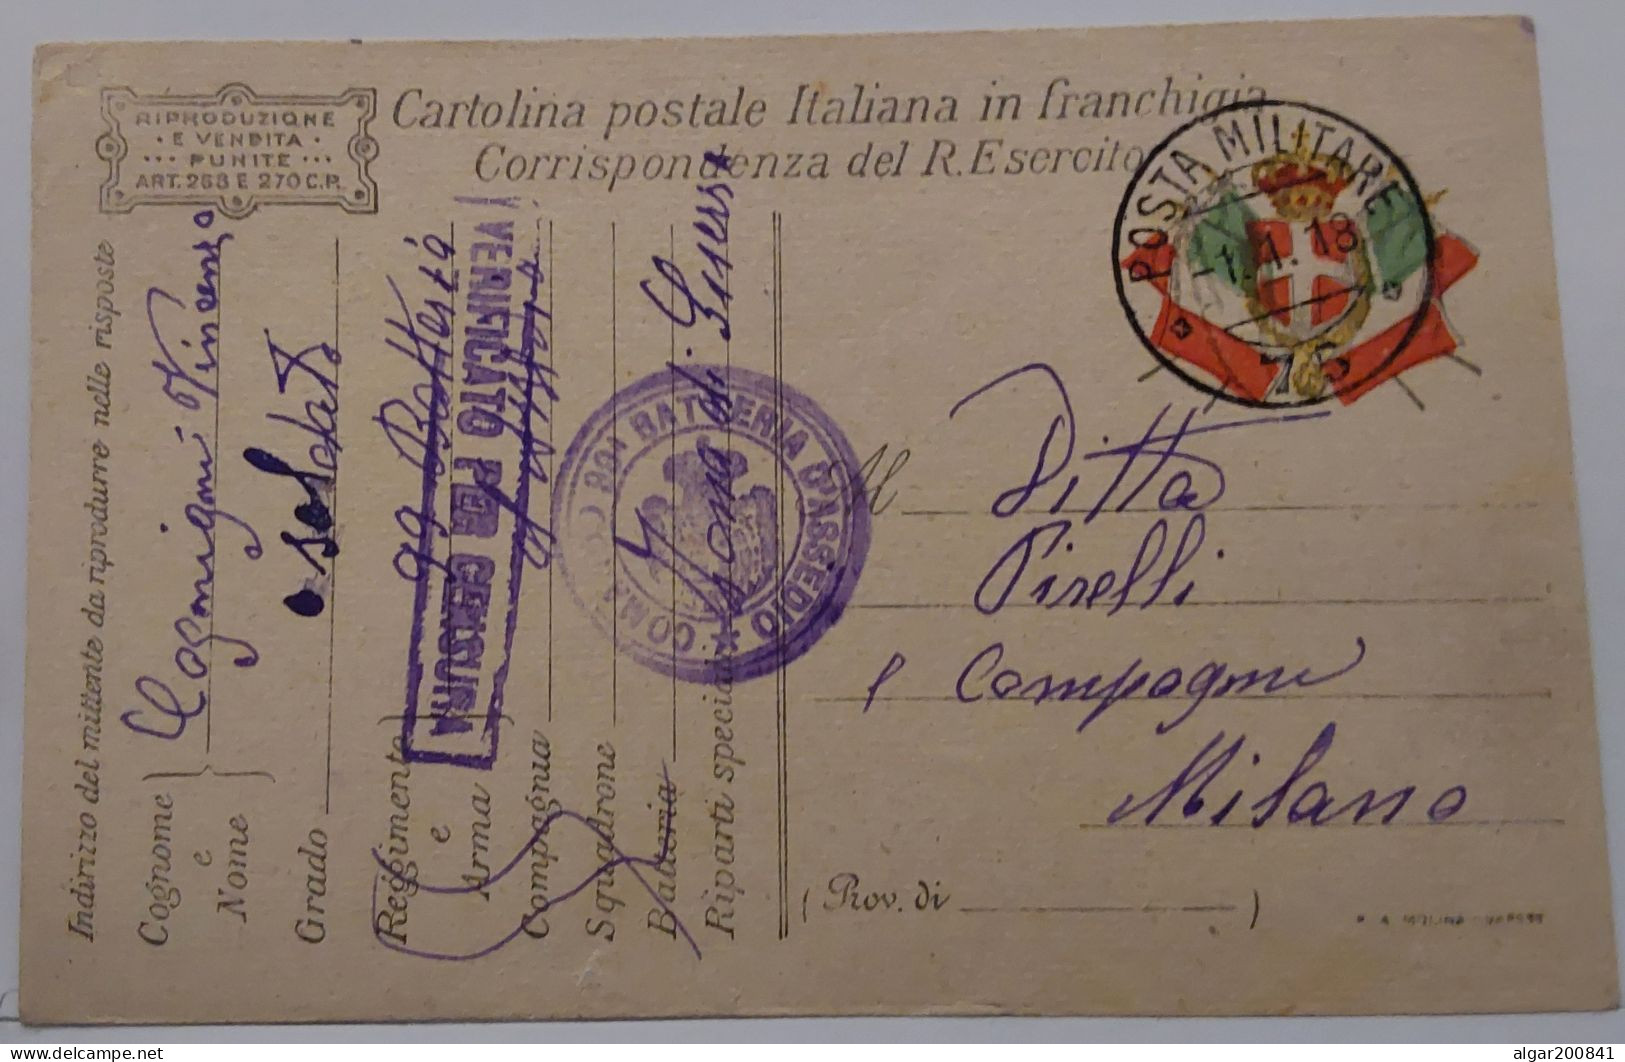 RIPRODUZIONE
E VENDITA
PUNITE
ART. 268 E 270 C.P.
Cartolina postale Italiana in franchigia
Corrispondenza del R. Esercito
POSTA MILITARE
1.1.18
75
Indirizzo del mittente da riprodurre nelle risposte
Cognome
e
Nome
Vincenzo
Grado soldato
Reggimento
e
Arma
99 Batteria
VERIFICATO PER CENSURA
Compagnia
Squadrone
Batteria
Riparti speciali
Zona di Guerra
BATTERIA D'ASSEDIO
Al Ditta
Pirelli
e Compagni
Milano
(Prov. di )
algar200841